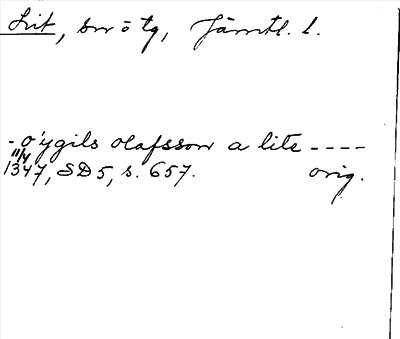 Lit, sn ö tg, Jämtl. l.
- o'ygils olafsson a lite ----
11/4
1347, SD 5, s. 657. orig.